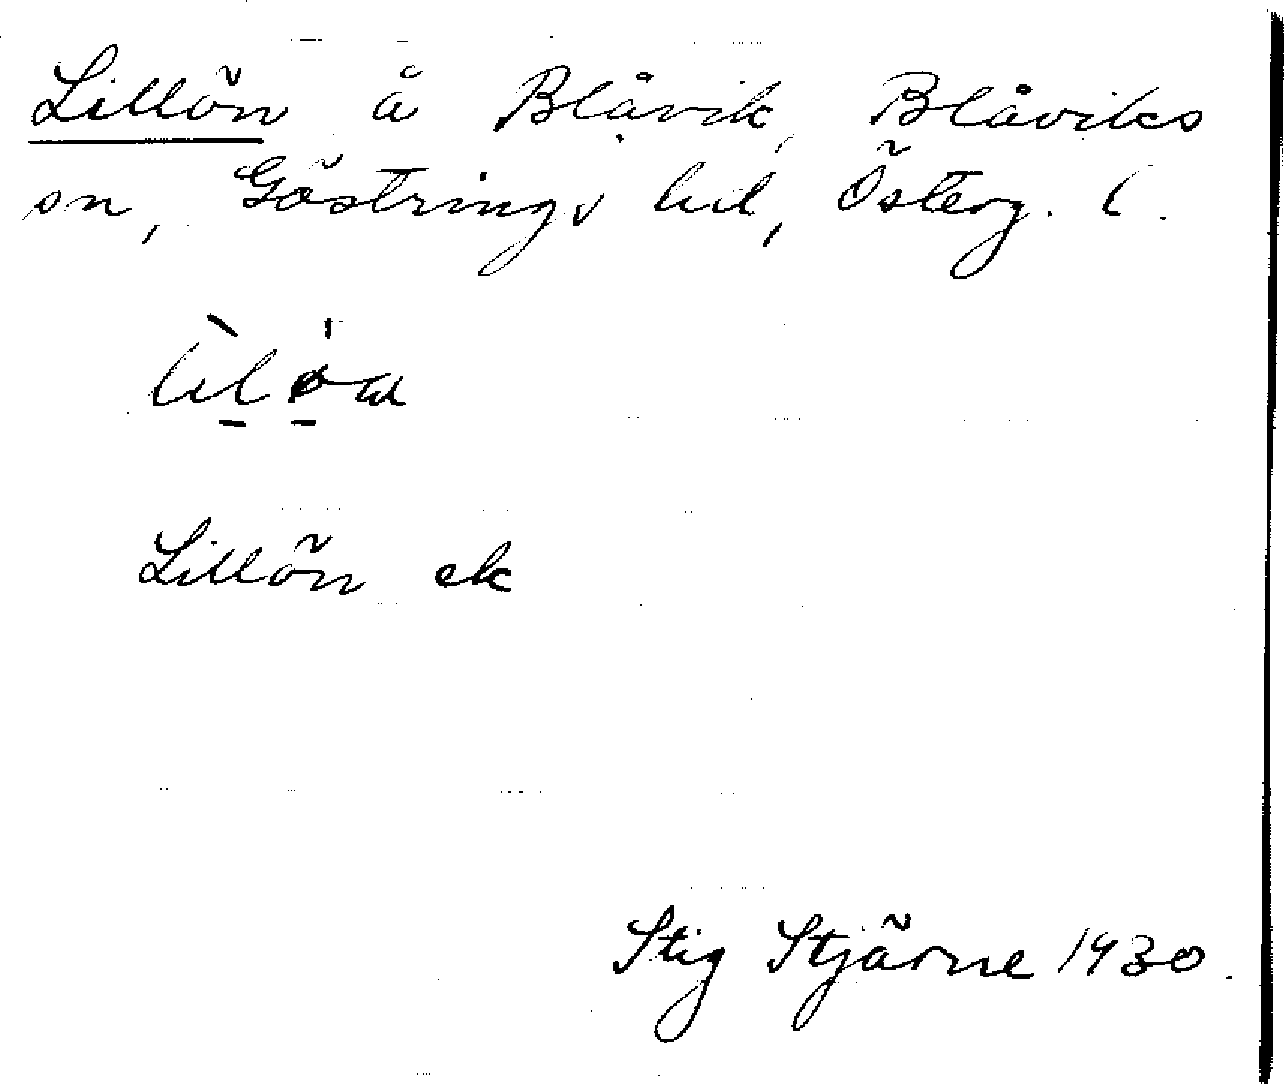 Lillön å Blåvik, Blåviks
sn, Göstrings hd, Österg. l.
Lillön ek
Stig Stjärne 1930.